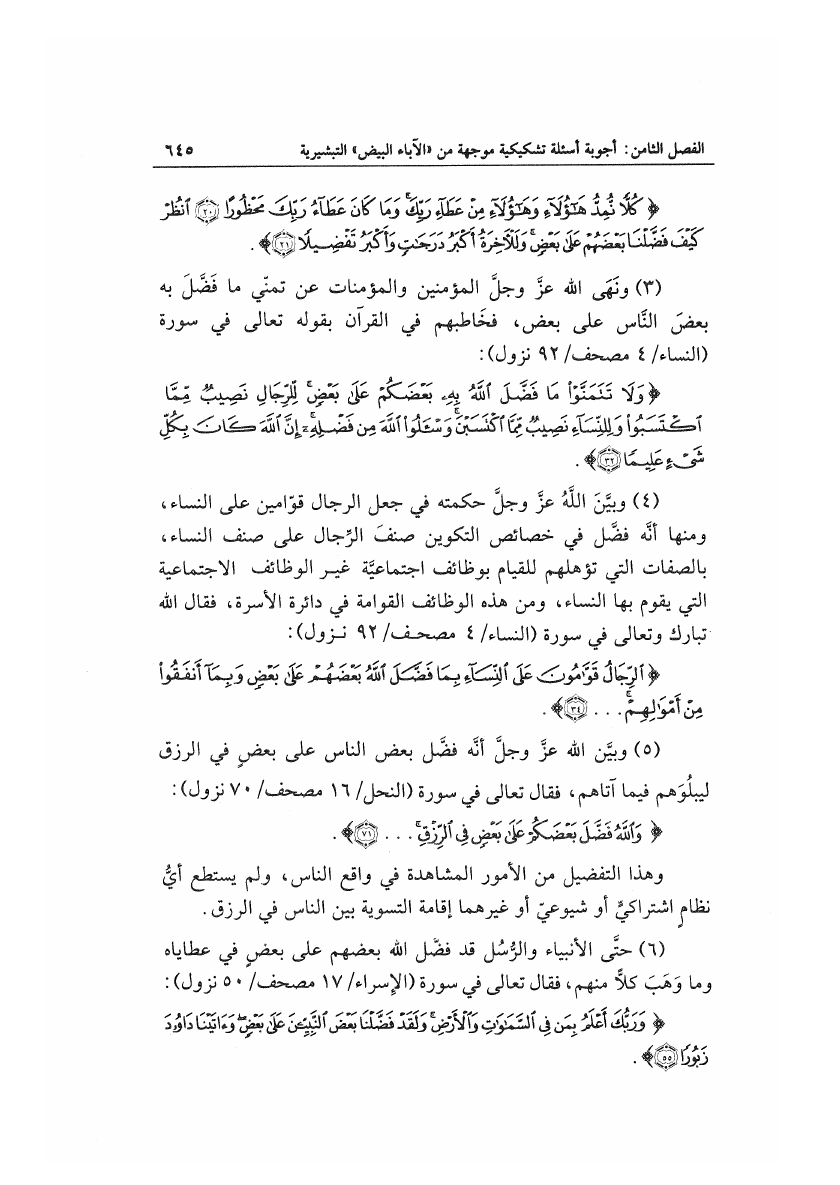 الفصل الثامن: أجوبة أسئلة تشكيكية موجهة من «الآباء البيض» التبشيرية ٦٤٥
﴿ كُلًّا نُّمِدُّ هَٰٓؤُلَآءِ وَهَٰٓؤُلَآءِ مِنْ عَطَآءِ رَبِّكَۚ وَمَا كَانَ عَطَآءُ رَبِّكَ مَحْظُورًا ۝٢٠ ٱنظُرْ
كَيْفَ فَضَّلْنَا بَعْضَهُمْ عَلَىٰ بَعْضٍۚ وَلَلْأٓخِرَةُ أَكْبَرُ دَرَجَٰتٍ وَأَكْبَرُ تَفْضِيلًا ۝٢١ ﴾ .
(٣) ونَهَى الله عزَّ وجلَّ المؤمنين والمؤمنات عن تمنّي ما فَضَّلَ به
بعضَ النَّاس على بعض، فخَاطبهم في القرآن بقوله تعالى في سورة
(النساء/ ٤ مصحف/ ٩٢ نزول):
﴿ وَلَا تَتَمَنَّوْا۟ مَا فَضَّلَ ٱللَّهُ بِهِۦ بَعْضَكُمْ عَلَىٰ بَعْضٍۚ لِّلرِّجَالِ نَصِيبٌ مِّمَّا
ٱكْتَسَبُوا۟ وَلِلنِّسَآءِ نَصِيبٌ مِّمَّا ٱكْتَسَبْنَۚ وَسْـَٔلُوا۟ ٱللَّهَ مِن فَضْلِهِۦٓۗ إِنَّ ٱللَّهَ كَانَ بِكُلِّ
شَىْءٍ عَلِيمًا ۝٣٢ ﴾ .
(٤) وبيَّنَ اللَّهُ عزَّ وجلَّ حكمته في جعل الرجال قوّامين على النساء،
ومنها أنَّه فضَّل في خصائص التكوين صنفَ الرِّجال على صنف النساء،
بالصفات التي تؤهلهم للقيام بوظائف اجتماعيَّة غير الوظائف الاجتماعية
التي يقوم بها النساء، ومن هذه الوظائف القوامة في دائرة الأسرة، فقال الله
تبارك وتعالى في سورة (النساء/ ٤ مصحف/ ٩٢ نزول):
﴿ ٱلرِّجَالُ قَوَّٰمُونَ عَلَى ٱلنِّسَآءِ بِمَا فَضَّلَ ٱللَّهُ بَعْضَهُمْ عَلَىٰ بَعْضٍ وَبِمَآ أَنفَقُوا۟
مِنْ أَمْوَٰلِهِمْۚ . . . ۝٣٤ ﴾ .
(٥) وبيَّن الله عزَّ وجلَّ أنَّه فضَّل بعض الناس على بعضٍ في الرزق
ليبلُوَهم فيما آتاهم، فقال تعالى في سورة (النحل/ ١٦ مصحف/ ٧٠ نزول):
﴿ وَٱللَّهُ فَضَّلَ بَعْضَكُمْ عَلَىٰ بَعْضٍ فِى ٱلرِّزْقِۚ . . . ۝٧١ ﴾ .
وهذا التفضيل من الأمور المشاهدة في واقع الناس، ولم يستطع أيُّ
نظامٍ اشتراكيٍّ أو شيوعيّ أو غيرهما إقامة التسوية بين الناس في الرزق.
(٦) حتَّى الأنبياء والرُّسُل قد فضَّل الله بعضهم على بعضٍ في عطاياه
وما وَهَبَ كلاًّ منهم، فقال تعالى في سورة (الإسراء/ ١٧ مصحف/ ٥٠ نزول):
﴿ وَرَبُّكَ أَعْلَمُ بِمَن فِى ٱلسَّمَٰوَٰتِ وَٱلْأَرْضِۗ وَلَقَدْ فَضَّلْنَا بَعْضَ ٱلنَّبِيِّـۧنَ عَلَىٰ بَعْضٍۖ وَءَاتَيْنَا دَاوُۥدَ
زَبُورًا ۝٥٥ ﴾ .